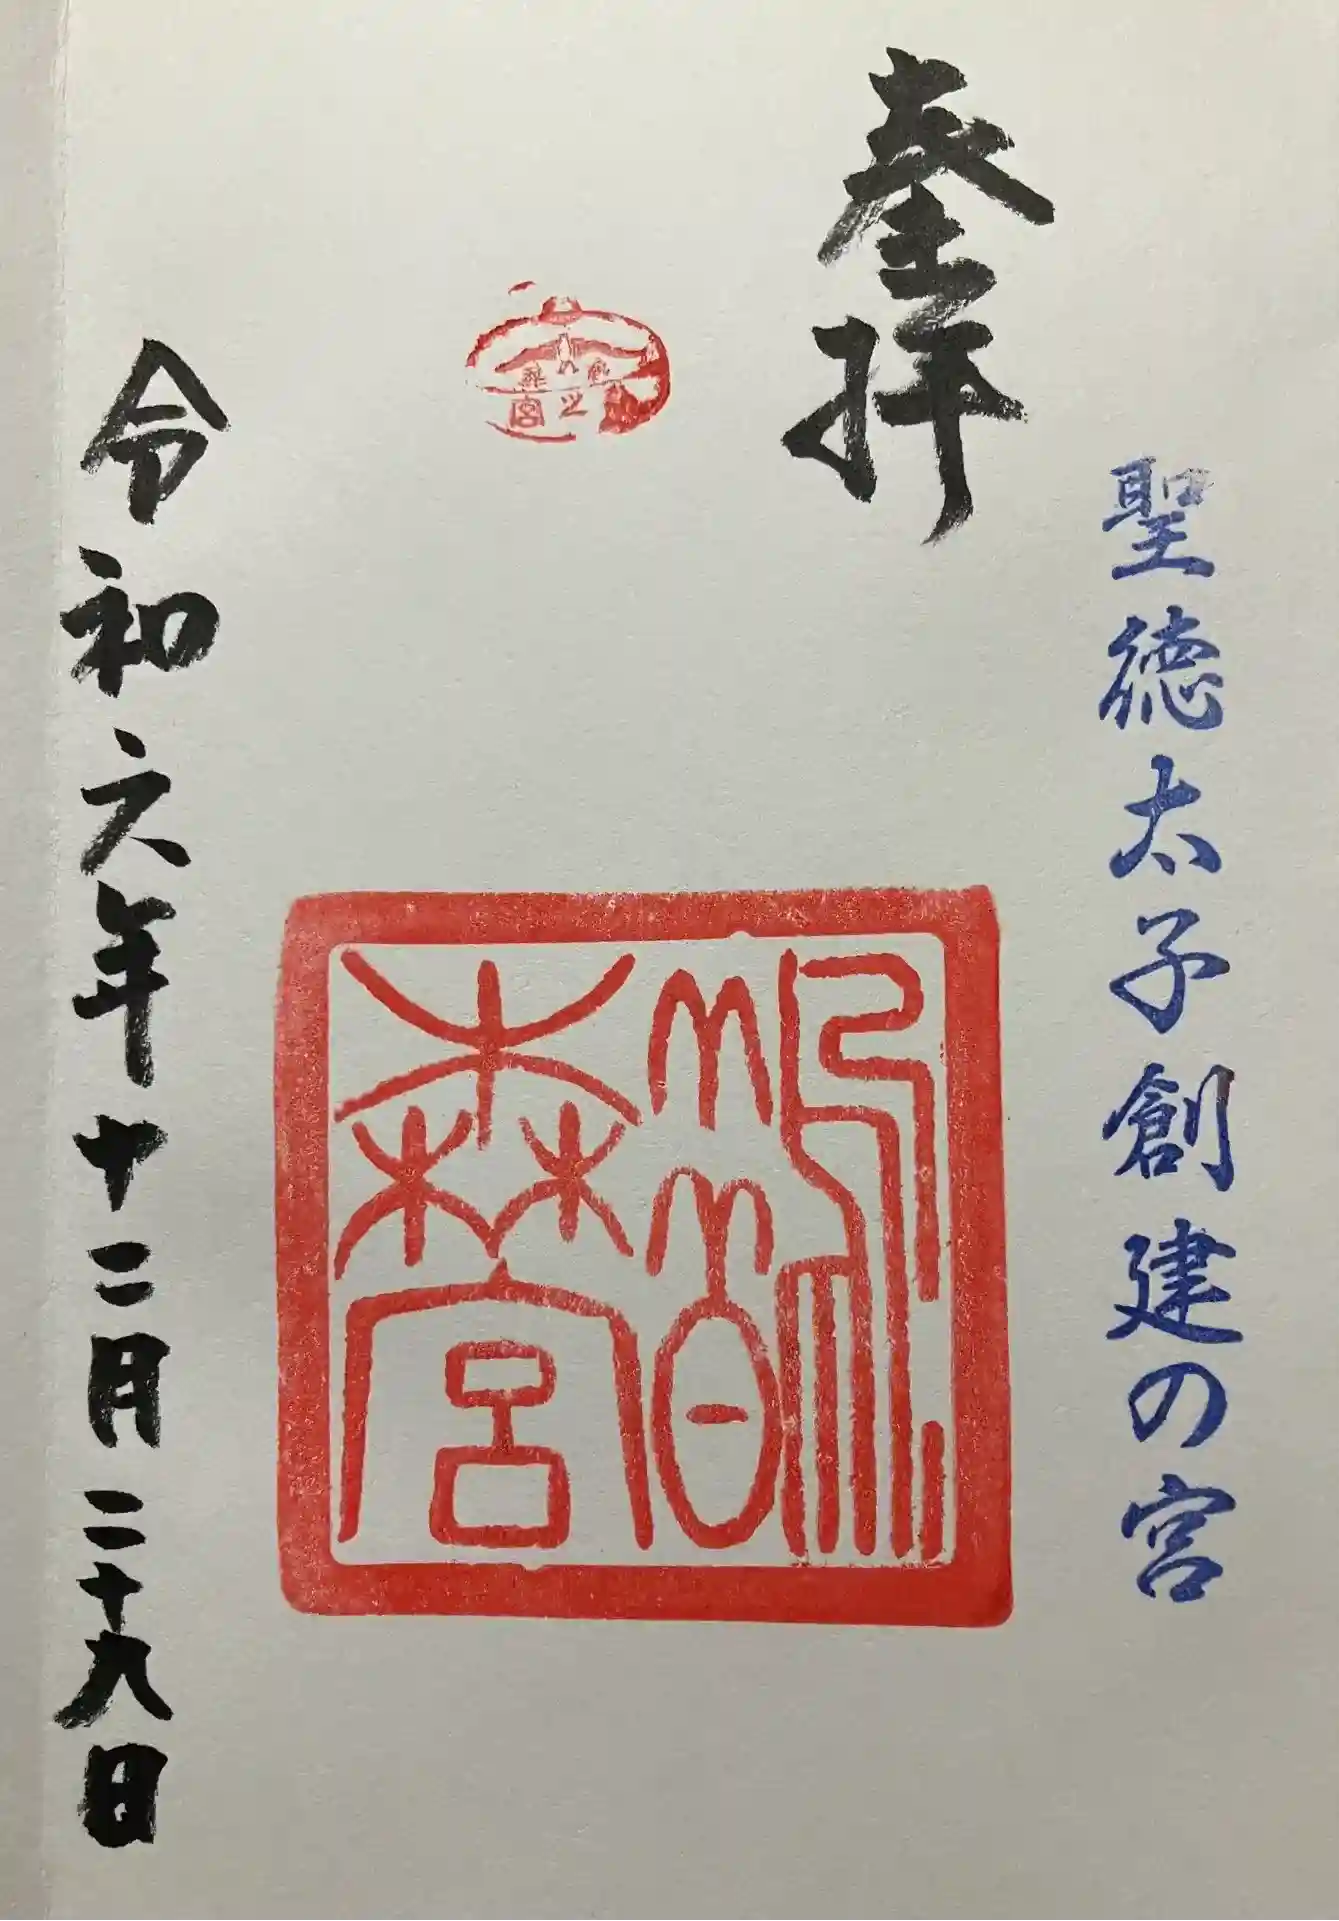 聖徳太子創建の宮
奉拝
鵲森宮
森之宮
令和六年十二月二十九日